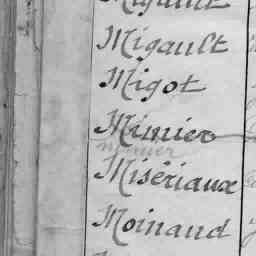 Migault
Migault
Migot
Minier
minier
Misériaux
Moinaud